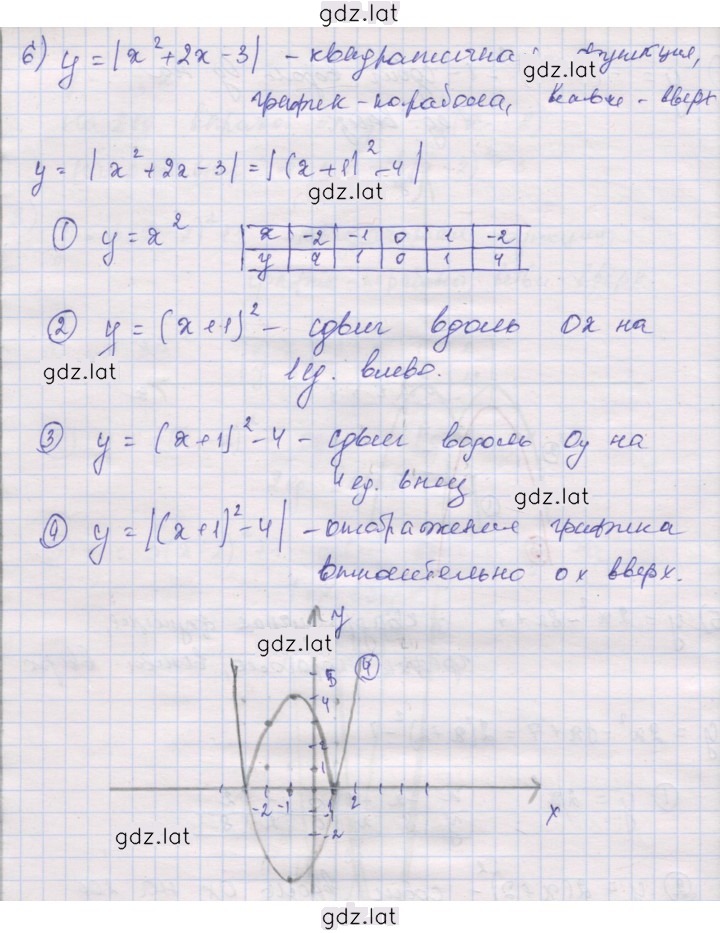 gdz.lat
б) y = |x² + 2x - 3| - квадратична функция,
gdz.lat
график - парабола, ветви - вверх
y = |x² + 2x - 3| = |(x + 1)² - 4|
gdz.lat
① y = x²
x -2 -1 0 1 -2
y 4 1 0 1 4
② y = (x + 1)² - сдвиг вдоль Ox на
gdz.lat
1 ед. влево.
③ y = (x + 1)² - 4 - сдвиг вдоль Oy на
4 ед. вниз
gdz.lat
④ y = |(x + 1)² - 4| - отображение графика
относительно ox вверх.
y
gdz.lat
5 ④
4
2
1
-2 -1 1 2 x
-1
-2
gdz.lat
gdz.lat